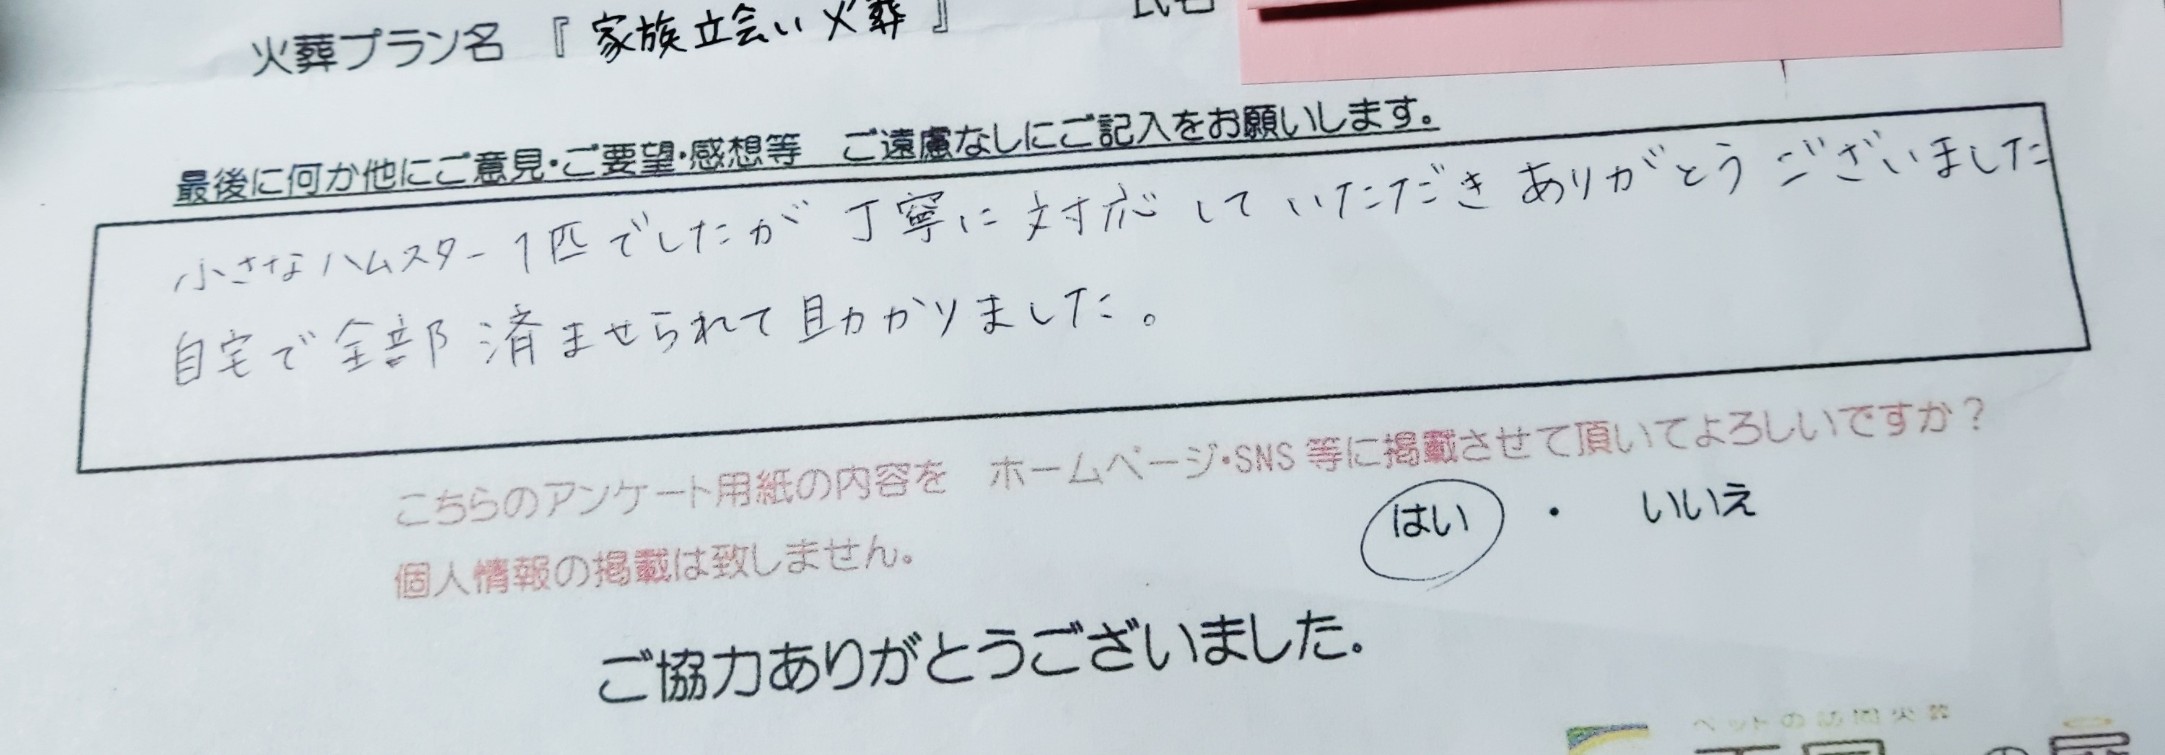 火葬プラン名 『 家族立会い火葬 』 氏名
最後に何か他にご意見・ご要望・感想等 ご遠慮なしにご記入をお願いします。
小さなハムスター1匹でしたが 丁寧に対応していただき ありがとうございました
自宅で全部済ませられて助かりました。
こちらのアンケート用紙の内容を ホームページ・SNS等に掲載させて頂いてよろしいですか?
個人情報の掲載は致しません。 はい ・ いいえ
ご協力ありがとうございました.
ペットの訪問火葬